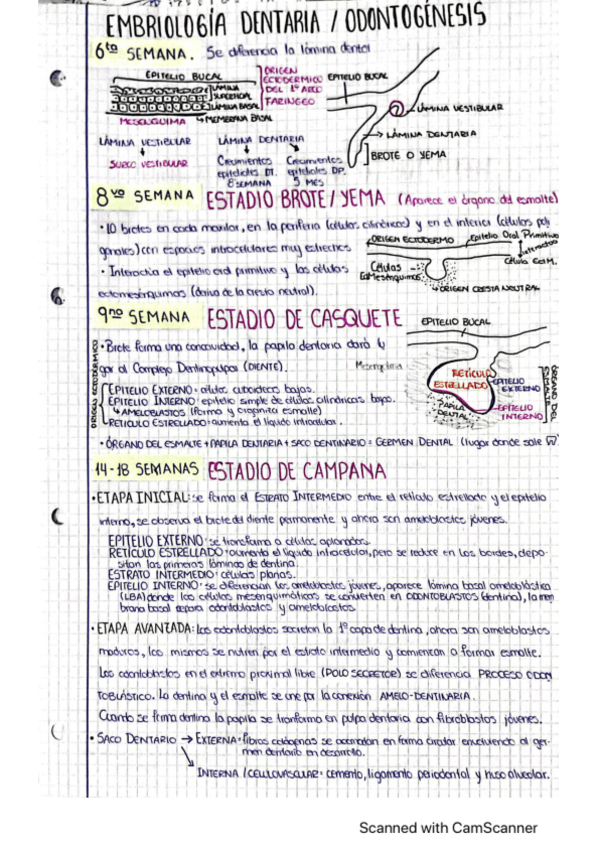 EMBRIOLOGÍA DENTARIA / ODONTOGÉNESIS
6ta SEMANA. Se diferencia la lámina dental
EPITELIO BUCAL
LÁMINA SUPERFICIAL
LÁMINA BASAL
MESENQUIMA
MEMBRANA BASAL
ORIGEN
ECTODERMICO
DEL 1º ARCO
FARINGEO
EPITELIO BUCAL
LÁMINA VESTIBULAR
LÁMINA DENTARIA
BROTE O YEMA
LÁMINA VESTIBULAR
SURCO VESTIBULAR
LÁMINA DENTARIA
Crecimientos epiteliales DT.
8 SEMANA
Crecimientos epiteliales DP.
5 MES
8vo SEMANA ESTADIO BROTE / YEMA (Aparece el órgano del esmalte)
• 10 brotes en cada maxilar, en la periferia (células cilíndricas) y en el interior (células poli
gonales) con espacios intracelulares muy estrechos
• Interactúa el epitelio oral primitivo y las células
ectomesénquimas (deriva de la cresta neutral).
ORIGEN ECTODERMO
Epitelio Oral Primitivo
Interactúa
Célula EctM.
Células
EctMesénquimas
ORIGEN CRESTA NEUTRAL
9no SEMANA ESTADIO DE CASQUETE
• Brote forma una concavidad, la papila dentaria dará lu
gar al Complejo Dentinopulpar (DIENTE).
ORIGEN ECTODERMICO
EPITELIO EXTERNO • células cuboideas bajas.
EPITELIO INTERNO • epitelio simple de células cilíndricas bajas.
AMELOBLASTOS (forma y organiza esmalte)
RETICULO ESTRELLADO • aumenta el líquido intracelular.
• ÓRGANO DEL ESMALTE + PAPILA DENTARIA + SACO DENTINARIO = GERMEN DENTAL (lugar donde sale
EPITELIO BUCAL
Mesenquima
RETICULO
ESTRELLADO
PAPILA
DENTAL
EPITELIO
EXTERNO
EPITELIO
INTERNO
ÓRGANO DEL
ESMALTE
14-18 SEMANAS ESTADIO DE CAMPANA
• ETAPA INICIAL: se forma el ESTRATO INTERMEDIO entre el retículo estrellado y el epitelio
interno, se observa el brote del diente permanente y ahora son ameloblastos jóvenes.
EPITELIO EXTERNO • se transforma a células aplanadas.
RETÍCULO ESTRELLADO • aumenta el líquido intracelular, pero se reduce en los bordes, depo-
sitan las primeras láminas de dentina.
ESTRATO INTERMEDIO • células planas.
EPITELIO INTERNO • se diferencian los ameloblastos jóvenes, aparece lámina basal ameloblástica
(LBA) donde las células mesenquimáticas se convierten en ODONTOBLASTOS (dentina), la mem
brana basal separa odontoblastos y ameloblastos
• ETAPA AVANZADA: Los odontoblastos secretan la 1º capa de dentina, ahora son ameloblastos
maduros, los mismos se nutren por el estrato intermedio y comienzan a formar esmalte.
Los odontoblastos en el extremo proximal libre (POLO SECRETOR) se diferencia PROCESO ODON
TOBLÁSTICO. La dentina y el esmalte se une por la conexión AMELO-DENTINARIA.
Cuando se forma dentina la papila se tranforma en pulpa dentaria con fibroblastos jóvenes.
• SACO DENTARIO → EXTERNA • fibras colágenas se acomodan en forma circular envolviendo al ger-
men dentario en desarrollo.
INTERNA / CELULOVASCULAR • cemento, ligamento periodontal y hueso alveolar.
Scanned with CamScanner